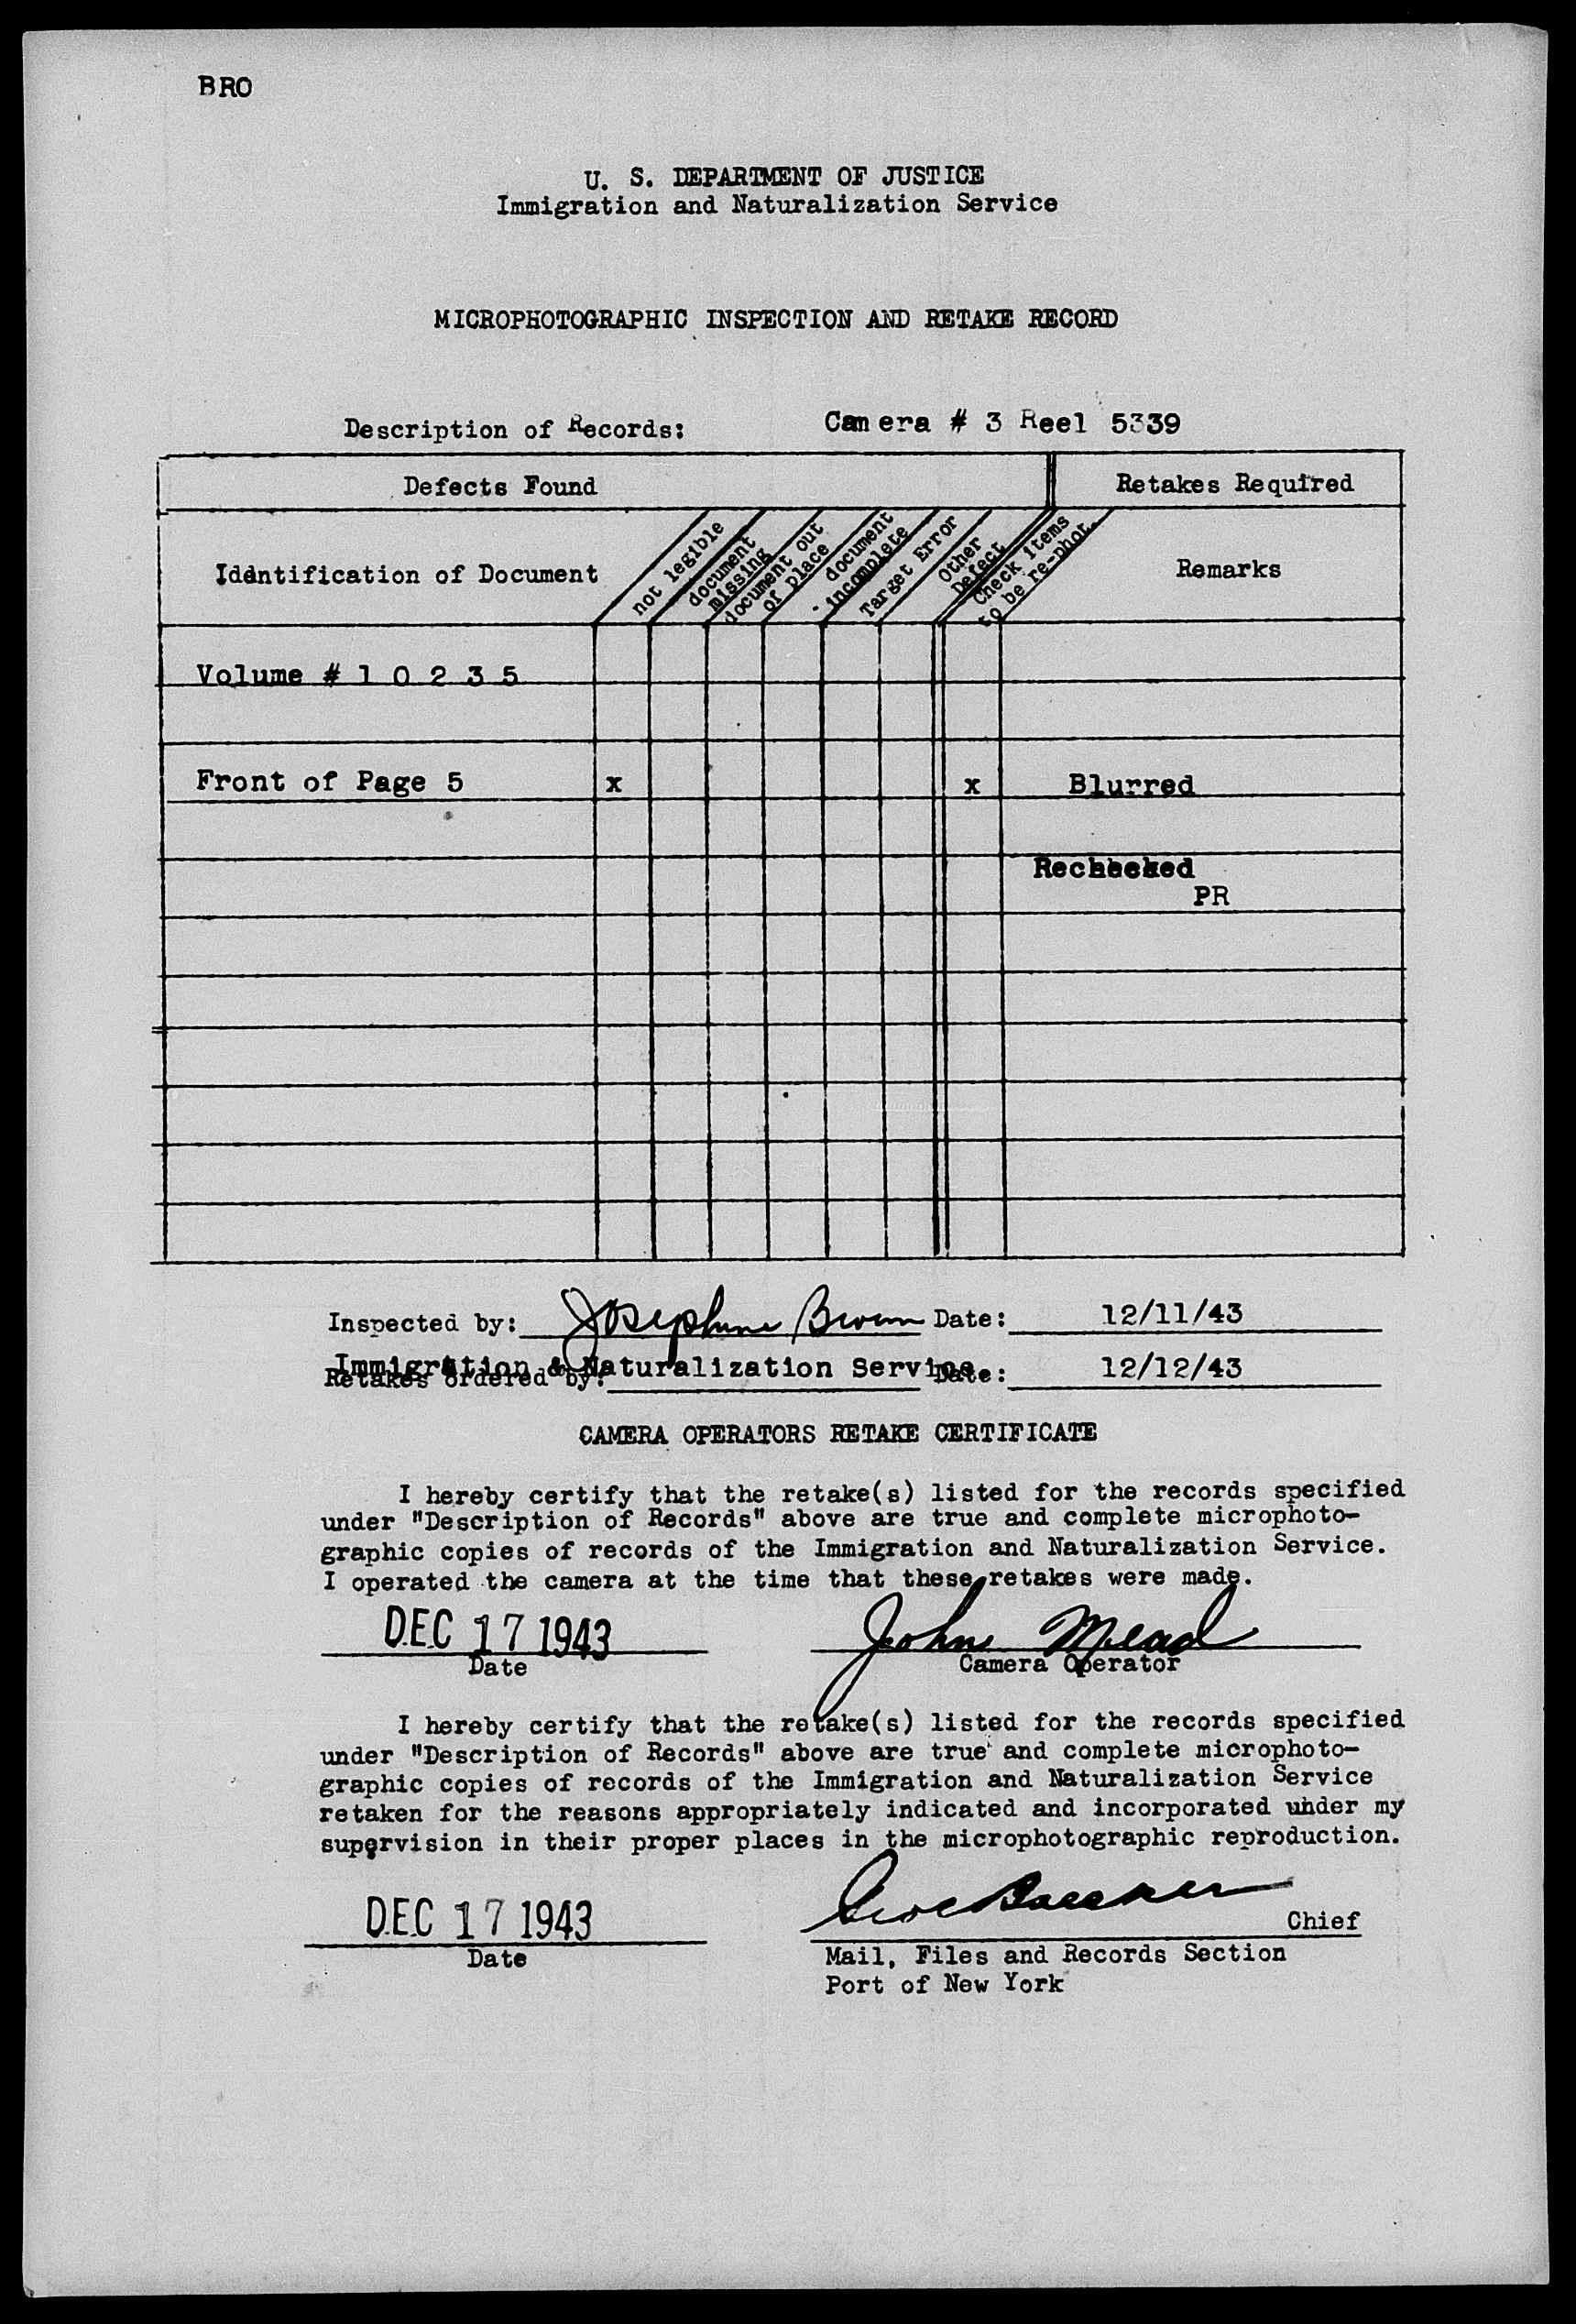 BRO
U. S. DEPARTMENT OF JUSTICE
Immigration and Naturalization Service
MICROPHOTOGRAPHIC INSPECTION AND RETAKE RECORD
Description of Records: Camera # 3 Reel 5339
Defects Found Retakes Required
Identification of Document
not legible
document
missing
document out
of place
document
incomplete
Target Error
Other
Defect
Check items
to be re-phot.
Remarks
Volume # 1 0 2 3 5
Front of Page 5 x x Blurred
Rechecked
PR
Inspected by: Josephine Date: 12/11/43
Immigration & Naturalization Service
Retakes ordered by: Date: 12/12/43
CAMERA OPERATORS RETAKE CERTIFICATE
I hereby certify that the retake(s) listed for the records specified
under "Description of Records" above are true and complete microphoto-
graphic copies of records of the Immigration and Naturalization Service.
I operated the camera at the time that these retakes were made.
DEC 17 1943 John Mead
Date Camera Operator
I hereby certify that the retake(s) listed for the records specified
under "Description of Records" above are true and complete microphoto-
graphic copies of records of the Immigration and Naturalization Service
retaken for the reasons appropriately indicated and incorporated under my
supervision in their proper places in the microphotographic reproduction.
DEC 17 1943 Chief
Date Mail, Files and Records Section
Port of New York